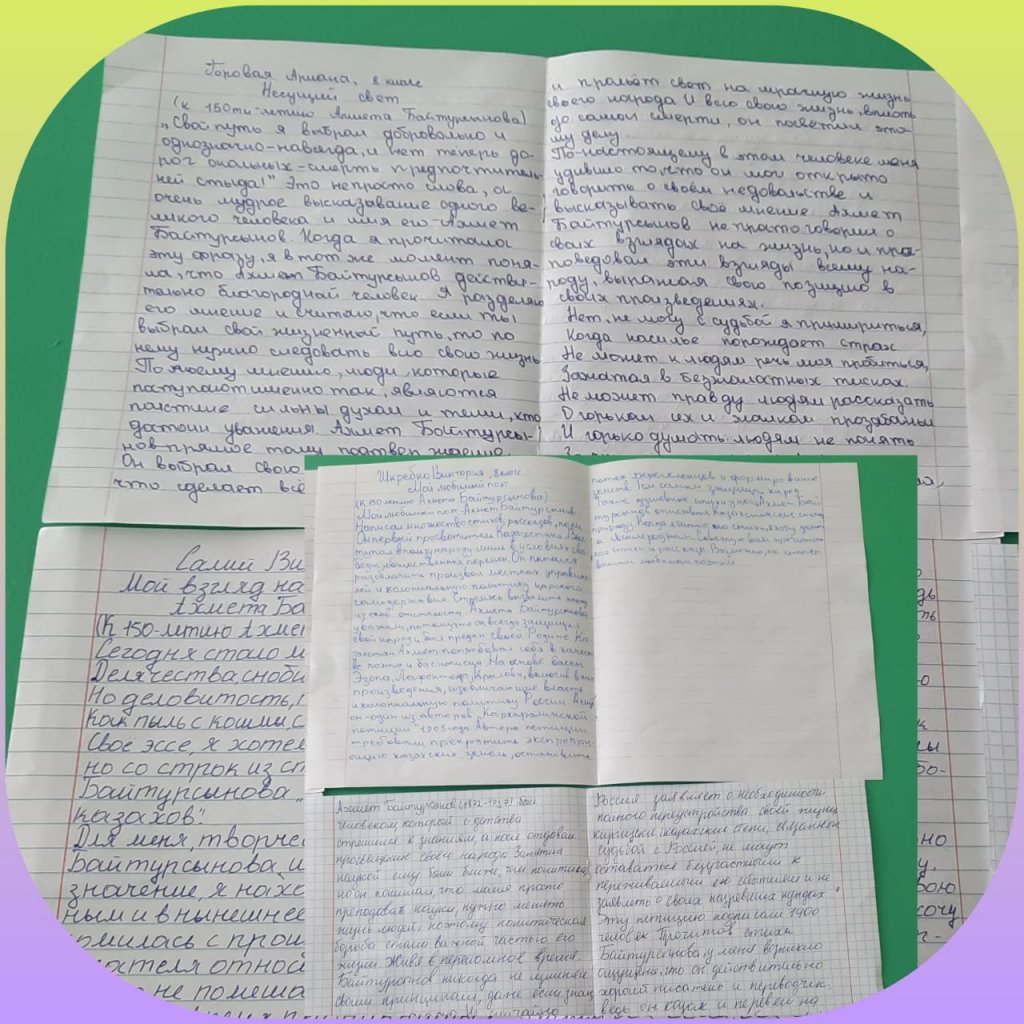 Горовая Ариана, 8 класс
Несущий свет
(к 150ти-летию Ахмета Байтурсынова)
„Свой путь я выбрал добровольно и
однозначно-навсегда, и нет теперь до-
рог окольных-смерть предпочтитель-
ней стыда!" Это непросто слова, а
очень мудрое высказывание одного ве-
ликого человека и имя его-Ахмет
Байтурсынов. Когда я прочитала
эту фразу, я в тот же момент поня-
ла, что Ахмет Байтурсынов действи-
тельно благородный человек. Я разделяю
его мнение и считаю, что если ты
выбрал свой жизненный путь, то по
нему нужно следовать всю свою жизнь
По моему мнению, люди, которые
поступают именно так, являются
поистине сильны духом и теми, кто
достоин уважения. Ахмет Байтурсы-
нов-прямое тому подтверждение.
Он выбрал свою
что сделает всё
и прольёт свет на мрачную жизнь
своего народа И всю свою жизнь, вплоть
до самой смерти, он посветил это-
му делу.
По-настоящему в этом человеке меня
удивило то, что он мог открыто
говорить о своём недовольстве и
высказывать своё мнение. Ахмет
Байтурсынов не просто говорил о
своих взглядах на жизнь, но и про-
поведовал эти взгляды всему на-
роду, выражая свою позицию в
своих произведениях.
Нет, не могу с судьбой я примириться,
Когда насилье порождает страх
Не может к людям речь моя пробиться,
Зажатая в безжалостных тисках.
Не может правду людям рассказать
О горьком их и жалком прозябаньи
И горько думать людям не понять
Шкребко Виктория, 8 класс
Мой любимый поэт
(К 150-летию Ахмета Байтурсынова)
Мой любимый поэт Ахмет Байтурсынов.
Написал множество стихов, рассказов, поэм
Он первый просветитель Казахстана. Выс-
тупал в международу лишь в условиях сво-
боды, общественных перемен. Он пытался
разоблачить произвол местных управите-
лей и колониальную политику царского
самодержавия. Стремясь вызволить народ
из оков отсталости Ахмета Байтурсынова
уважали, потому что он всегда защищал
свой народ и был предан своей Родине Ка-
захстан. Ахмет попробовал себя в качест-
ве поэта и баснописца. На основе басен
Эзопа, Лафонтефа, Крылова, включив в них
произведения, изобличающие власть
и колониальную политику России. А ещё
он-один из авторов „Каркаралинской
петиции" 1905 года. Авторы петиции
требовали прекратить экспропри-
ацию казахских земель, остановить
поток переселенцев и формирование
земств. Тем самым защищал народ.
Такие душевные стихи у него. Ахмет Бай-
турсынов описывал Казахстанские степи,
природу. Когда я читаю его стихи, я хочу
к своим родным. Советую вам прочитать
его стихи и рассказы. Возможно, он станет
вашим любимым поэтом
Салий Ви
Мой взгляд на
Ахмета Ба
(К 150-летию Ахмет
Сегодня стало м
Делячества, сноби
Но деловитость,
Как пыль с кошмы с
Своё эссе, я хотел
но со строк из ст
Байтурсынова „
казахов".
Для меня, творче
Байтурсынова, и
значение, я нахо
ным и в нынешнее
комилась с прои
сателя относ
но не помеша
Ахмет Байтурсынов (1872-1937) был
человеком, который с детства
стремился к знаниям и пол отдавал
просвещению своего народа. Занятия
наукой ему были ближе, чем политика,
но он понимал, что мало просто
преподавать науки, нужно менять
жизнь людей, поэтому политическая
борьба стала важной частью его
жизни. Живя в переломное время,
Байтурсынов никогда не изменял
своим принципам, даже если знал
Россия заявляет о необходимости
полного переустройства своей жизни,
киргизской (казахской степи, связанные
судьбой с Россией, не могут
оставаться безучастными к
переживаемым ею событиям и не
заявлять о своих назревших нуждах"
Эту петицию подписали 14500
человек. Прочитав стихи
Байтурсынова, у меня возникло
ощущение, что он действительно
хороший писатель и переводчик.
ведь он казах и перевёл на